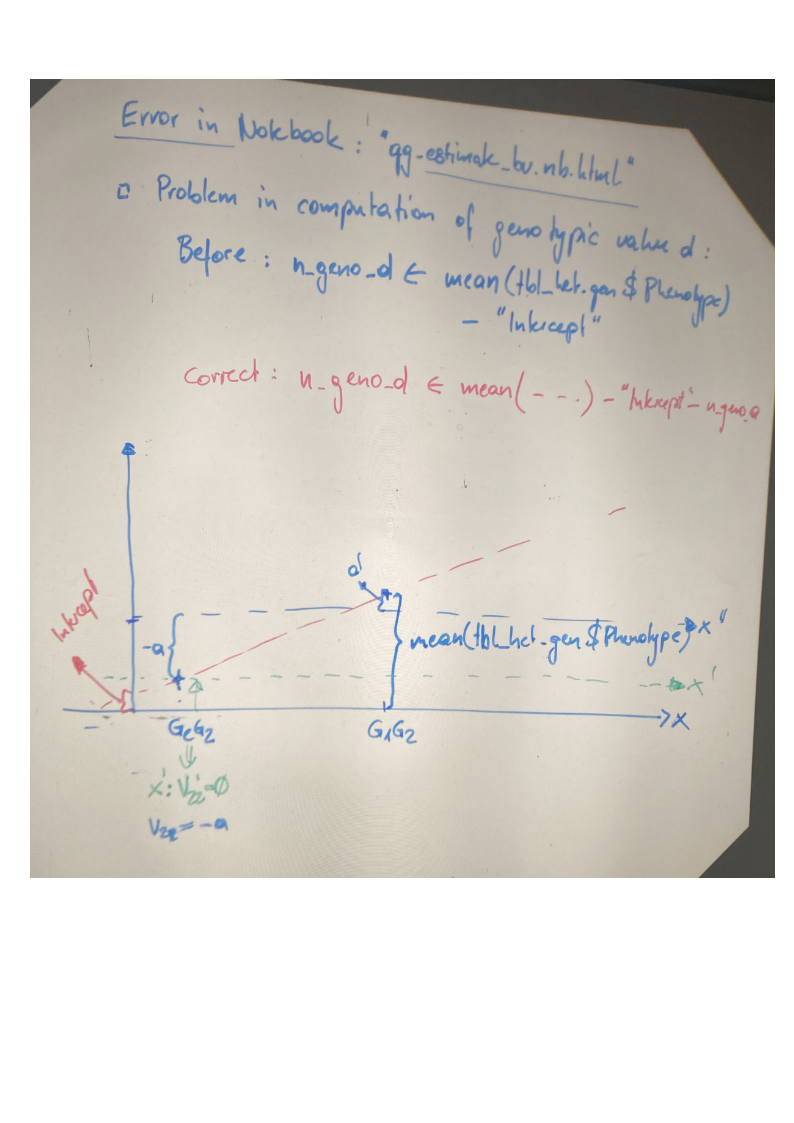 Error in Notebook : "qg-estimate_bv.nb.html"
Problem in computation of genotypic value d :
Before : n_geno_d ← mean(tbl_het.gen$Phenotype)
- "Intercept"
Correct : n_geno_d ← mean(- - -.) - "Intercept" - n_geno_a
d
Intercept
-a
mean(tbl_het.gen$Phenotype)
x''
x'
x
G2G2
G1G2
x': V22'=0
V22 = -a